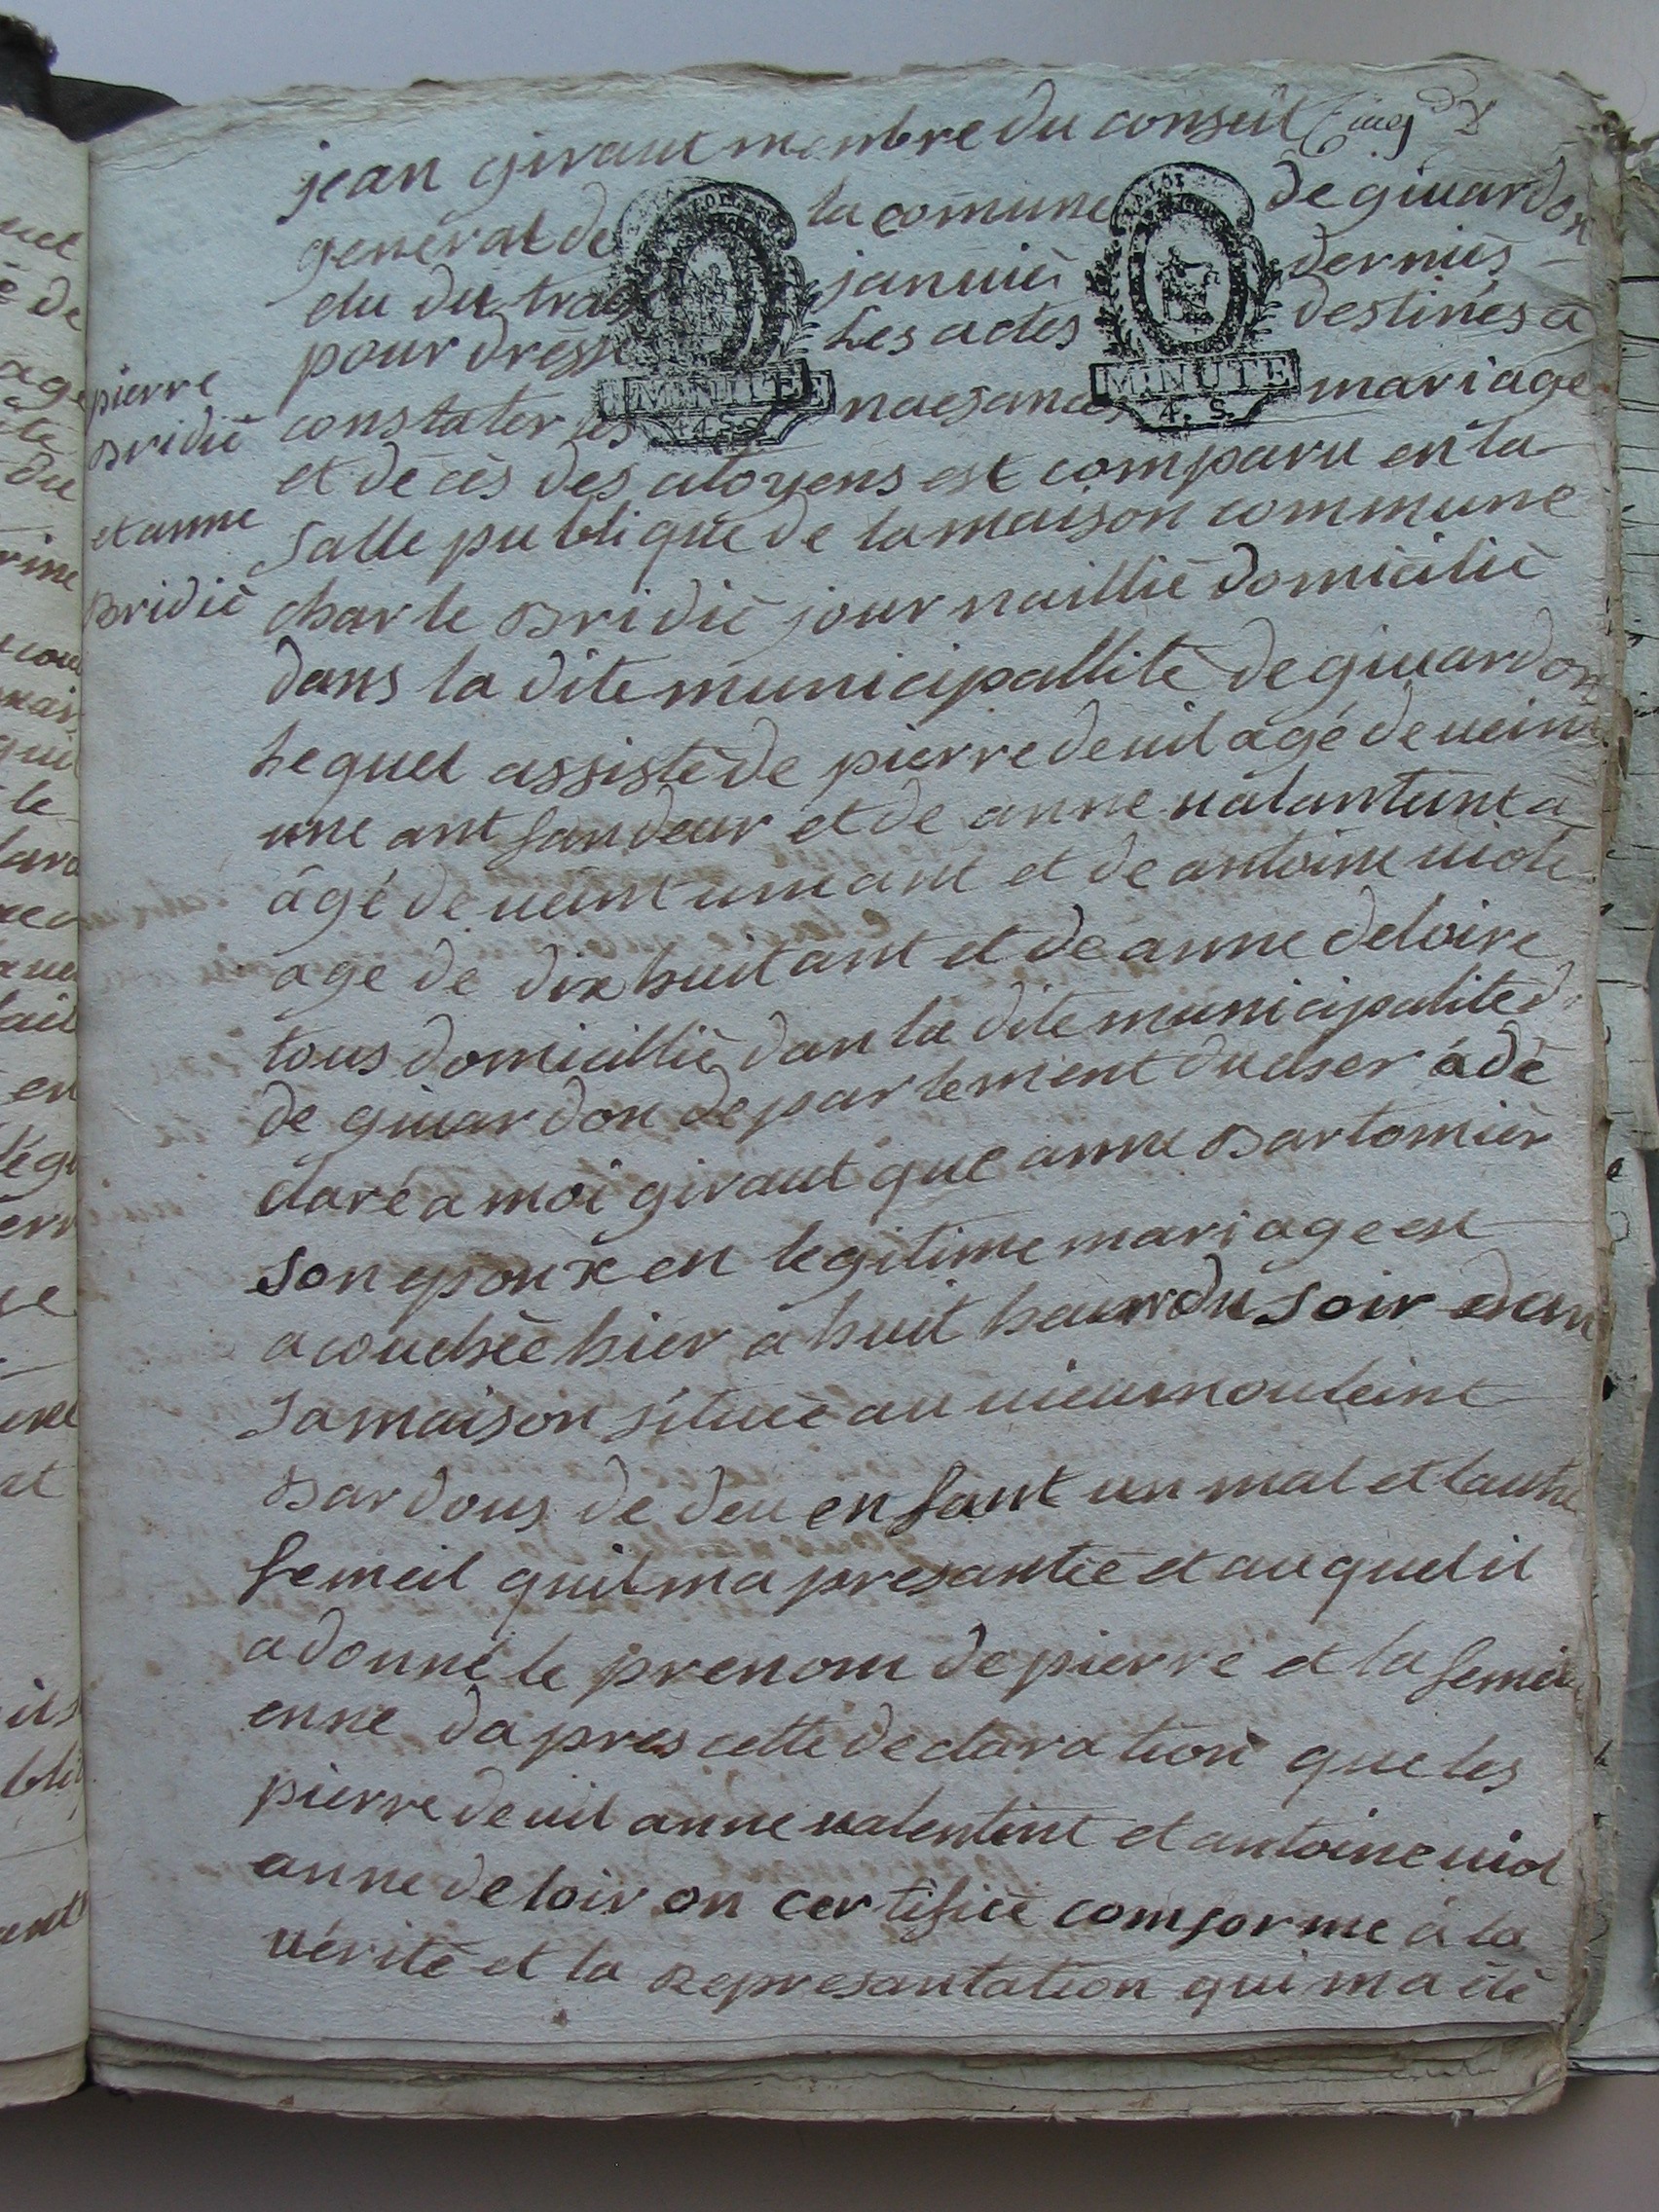 jean giraut membre du conseil
general de la comune de givardon
elu du janvier dernies
pour dresse Les actes destinés a
pierre
Bridié
constater les naesances mariage
MINUTE
4. S.
MINUTE
4. S.
et decès des citoyens est comparu en la
et anne
Bridié
Salle publique de la maison commune
charle Bridié journaillié domicilié
dans la dite municipallité de givardon
Lequel assisté de pierre deuil agé de veint
une ant fandeur et de anne valanteint a
âgé de veint une ant et de antoine violé
age de dix huit ant et de anne deloire
tous domicillié dan la dite municipalité d
de givardon departement du cher a dé
claré a moi giraut que anne Bartomier
son epouxe en legitime mariage est
acouchée hier a huit heur du soir dan
sa maison situeé au vieu mouleint
Bardous de deu enfant un mal et lautre
femeil quil ma presantée et auquel il
a donné le prenom de pierre et la femeil
enne dapres cette declaration que les
pierre deuil anne valentint et antoine viol
anne deloir on certifiée comforme a la
vérité et la Represantation qui ma été